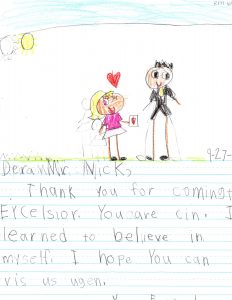 9-27-
Dera Mr. Nick,
Thank you for coming t
Excelsior. You are cin. I
learned to believe in
myself. I hope You can
vis us ugen.